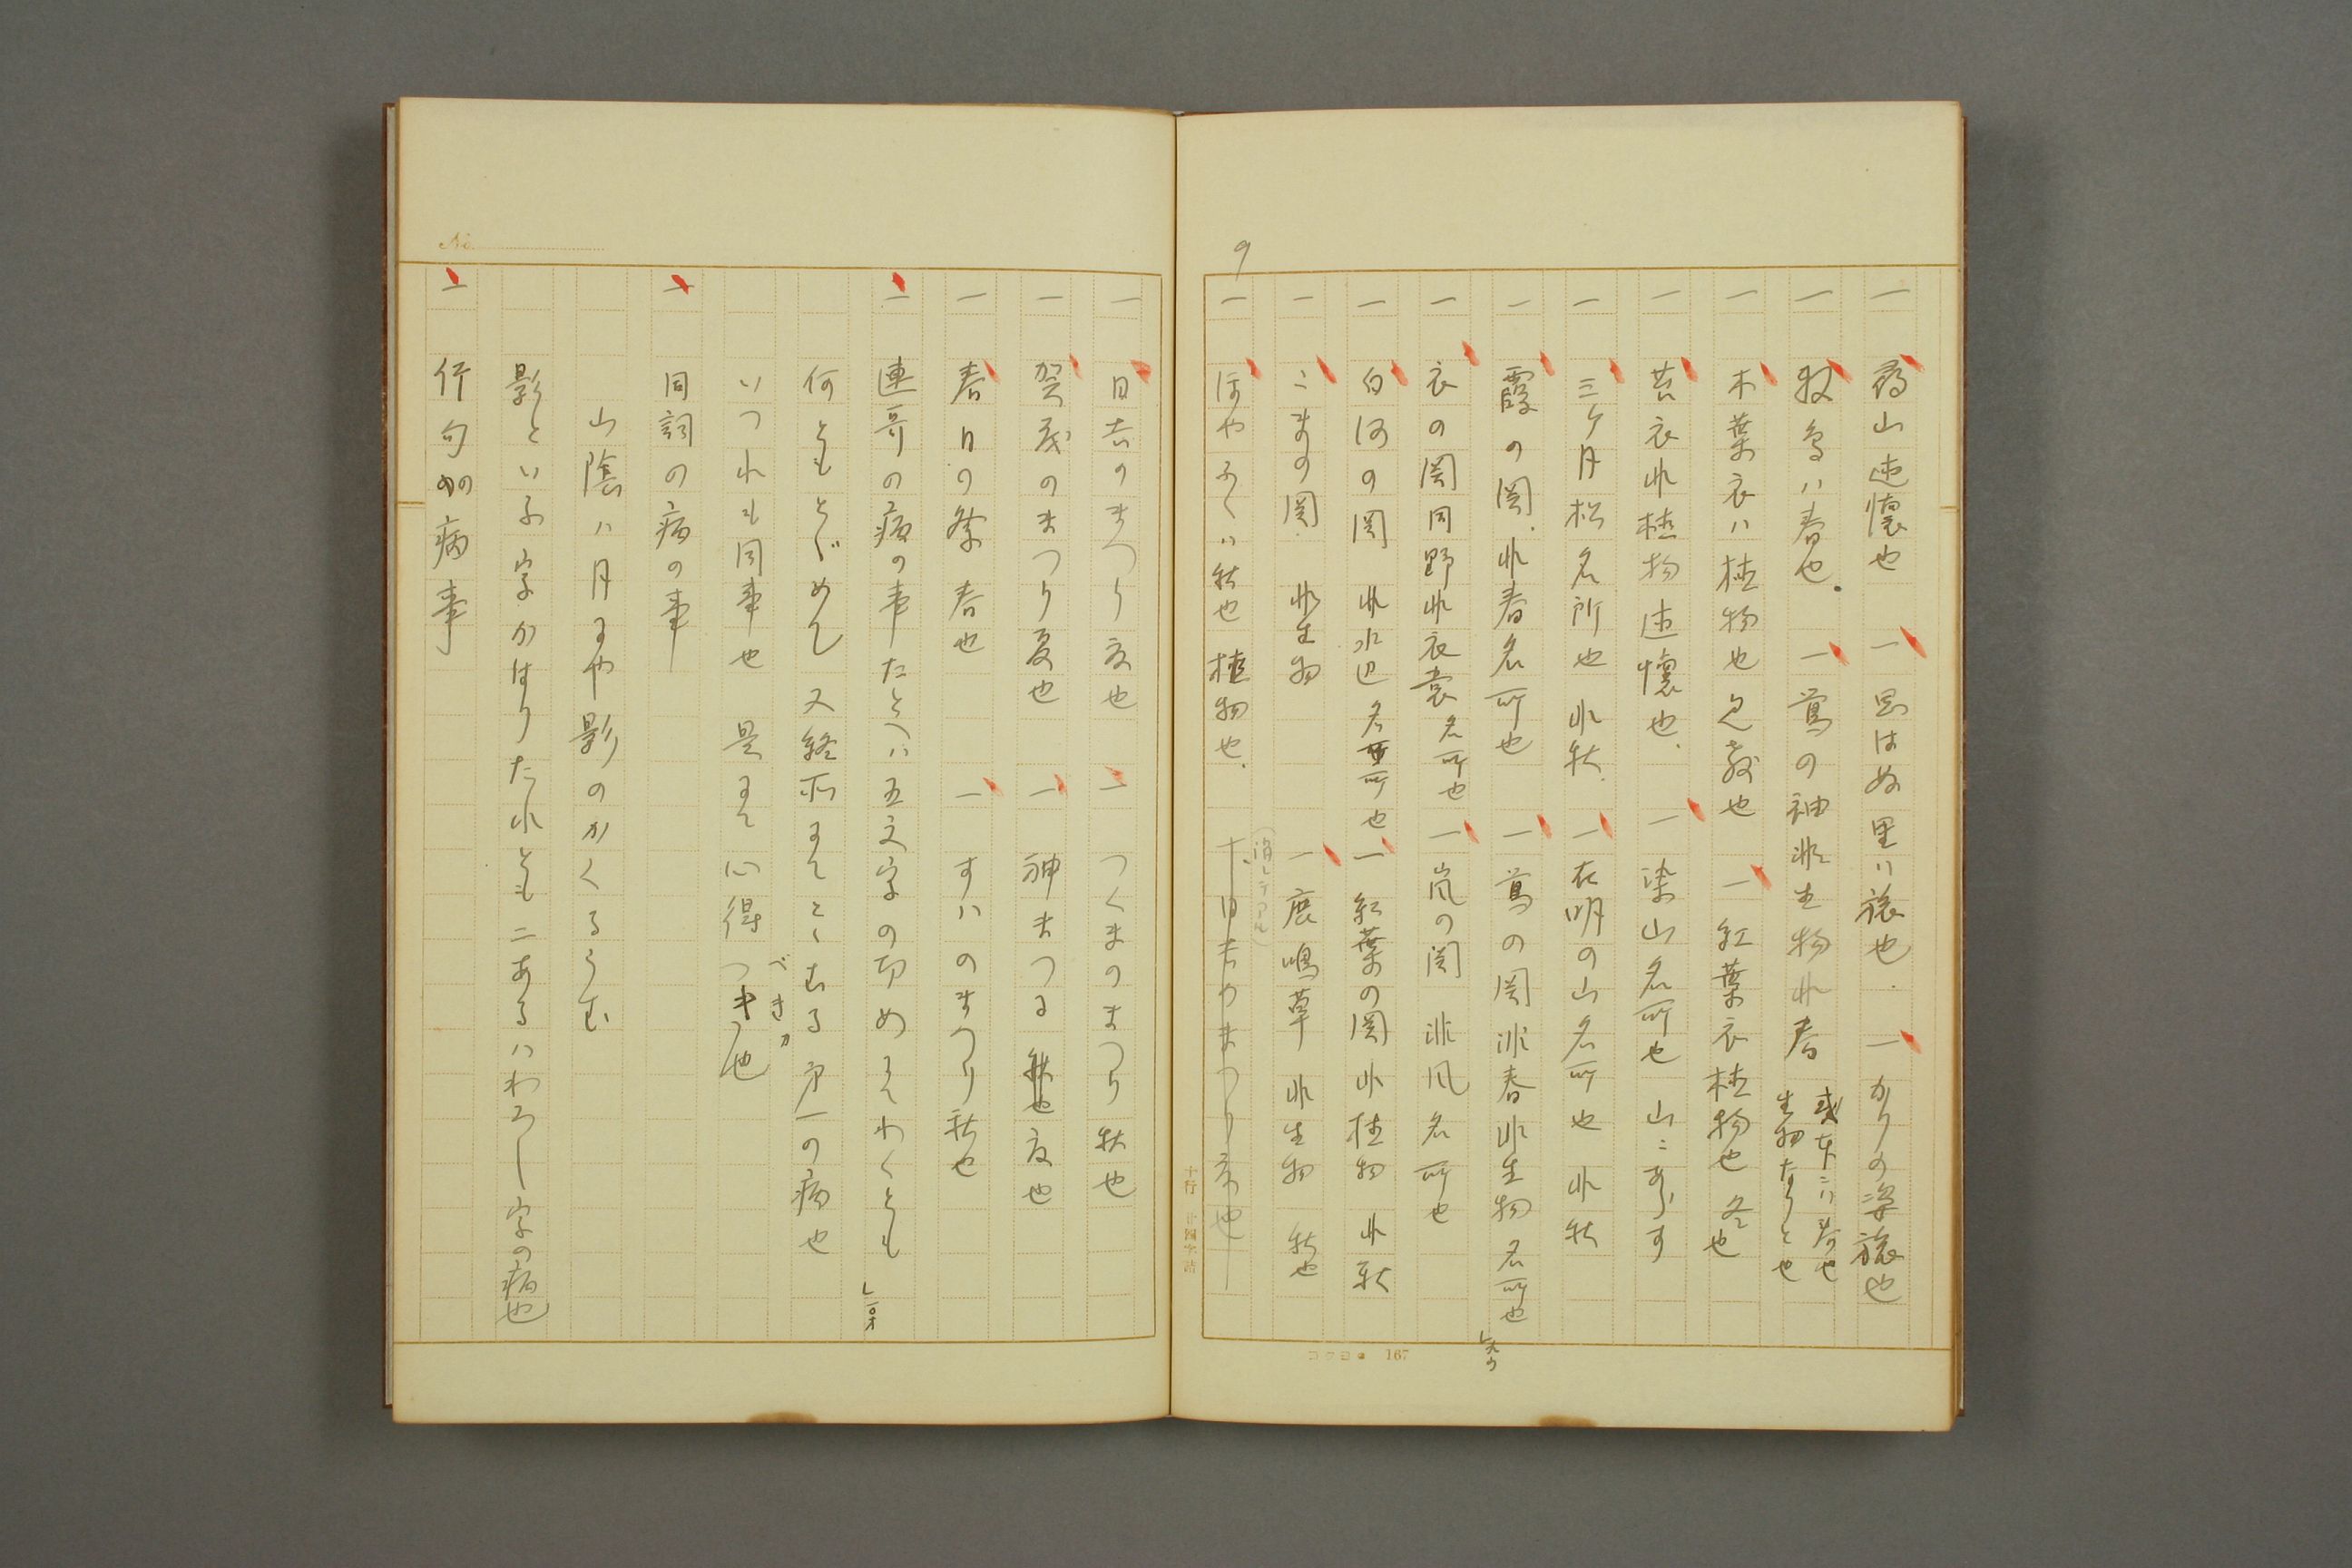 9
一 尋山述懐也 一 思はぬ里ハ旅也 一 かりの姿旅也
一 牧鳥ハ春也 一 鴬の袖非生物非春 或本ニハ春也 生物なりと也
一 木葉衣ハ植物也 尺教也 一 紅葉衣植物也 冬也
一 苔衣非植物 述懐也 一 染山名所也 山ニあらす
一 三ケ月松名所也 非秋 一 在明の山名所也 非秋
一 霞の関 非春名所也 一 鴬の関 非春非生物 名所也
一 衣の関 同野非衣裳 名所也 一 嵐の関 非風名所也
一 白河の関 非水辺 名所也 一 紅葉の関 非植物 非秋
一 こまの関 非生物 一 鹿鳴草 非生物 秋也
一 ほやふくハ秋也 植物也
十行 廿四字詰
コクヨ 167
No.
一 日吉のまつり 夏也 一 つくまのまつり 秋也
一 賀茂のまつり 夏也 一 神まつる 秋也 夏也
一 春日の祭 春也 一 すハのまつり 秋也
一 連哥の病の事 たとへハ五文字の切めにてわくとも
何ともとゞめて 又終所にてとゝむる 第一の病也
いつれも同事也 是にて心得つき也 べきカ
一 同詞の病の事
山陰ハ月にや影のかくるらむ
影といふ字かはりたれとも二あるハわろし 字の病也
一 行句の病事